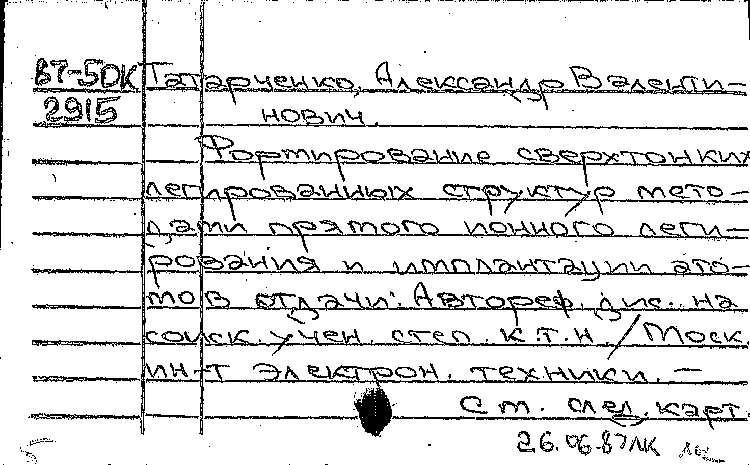 87-5DK Татарченко, Александр Валенти-
2915 нович.
Формирование сверхтонких
легированных структур мето-
дами прямого ионного леги-
рования и имплантации ато-
мов отдачи: Автореф. дис. на
соиск. учен. степ. к.т.н. / Моск.
ин-т электрон. техники. —
См. след. карт.
26.06.87 ЛК